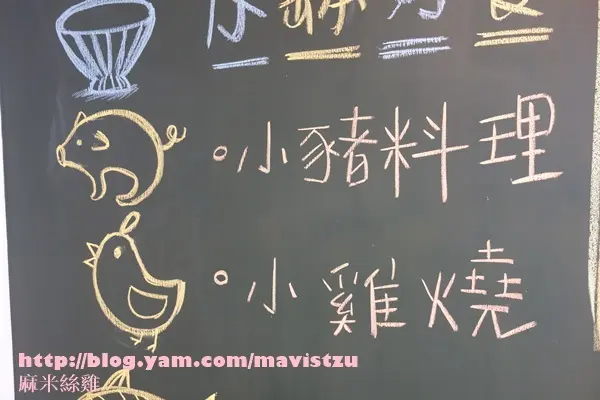 小豬料理
小雞燒
http://blog.yam.com/mavistzu
麻米絲雞